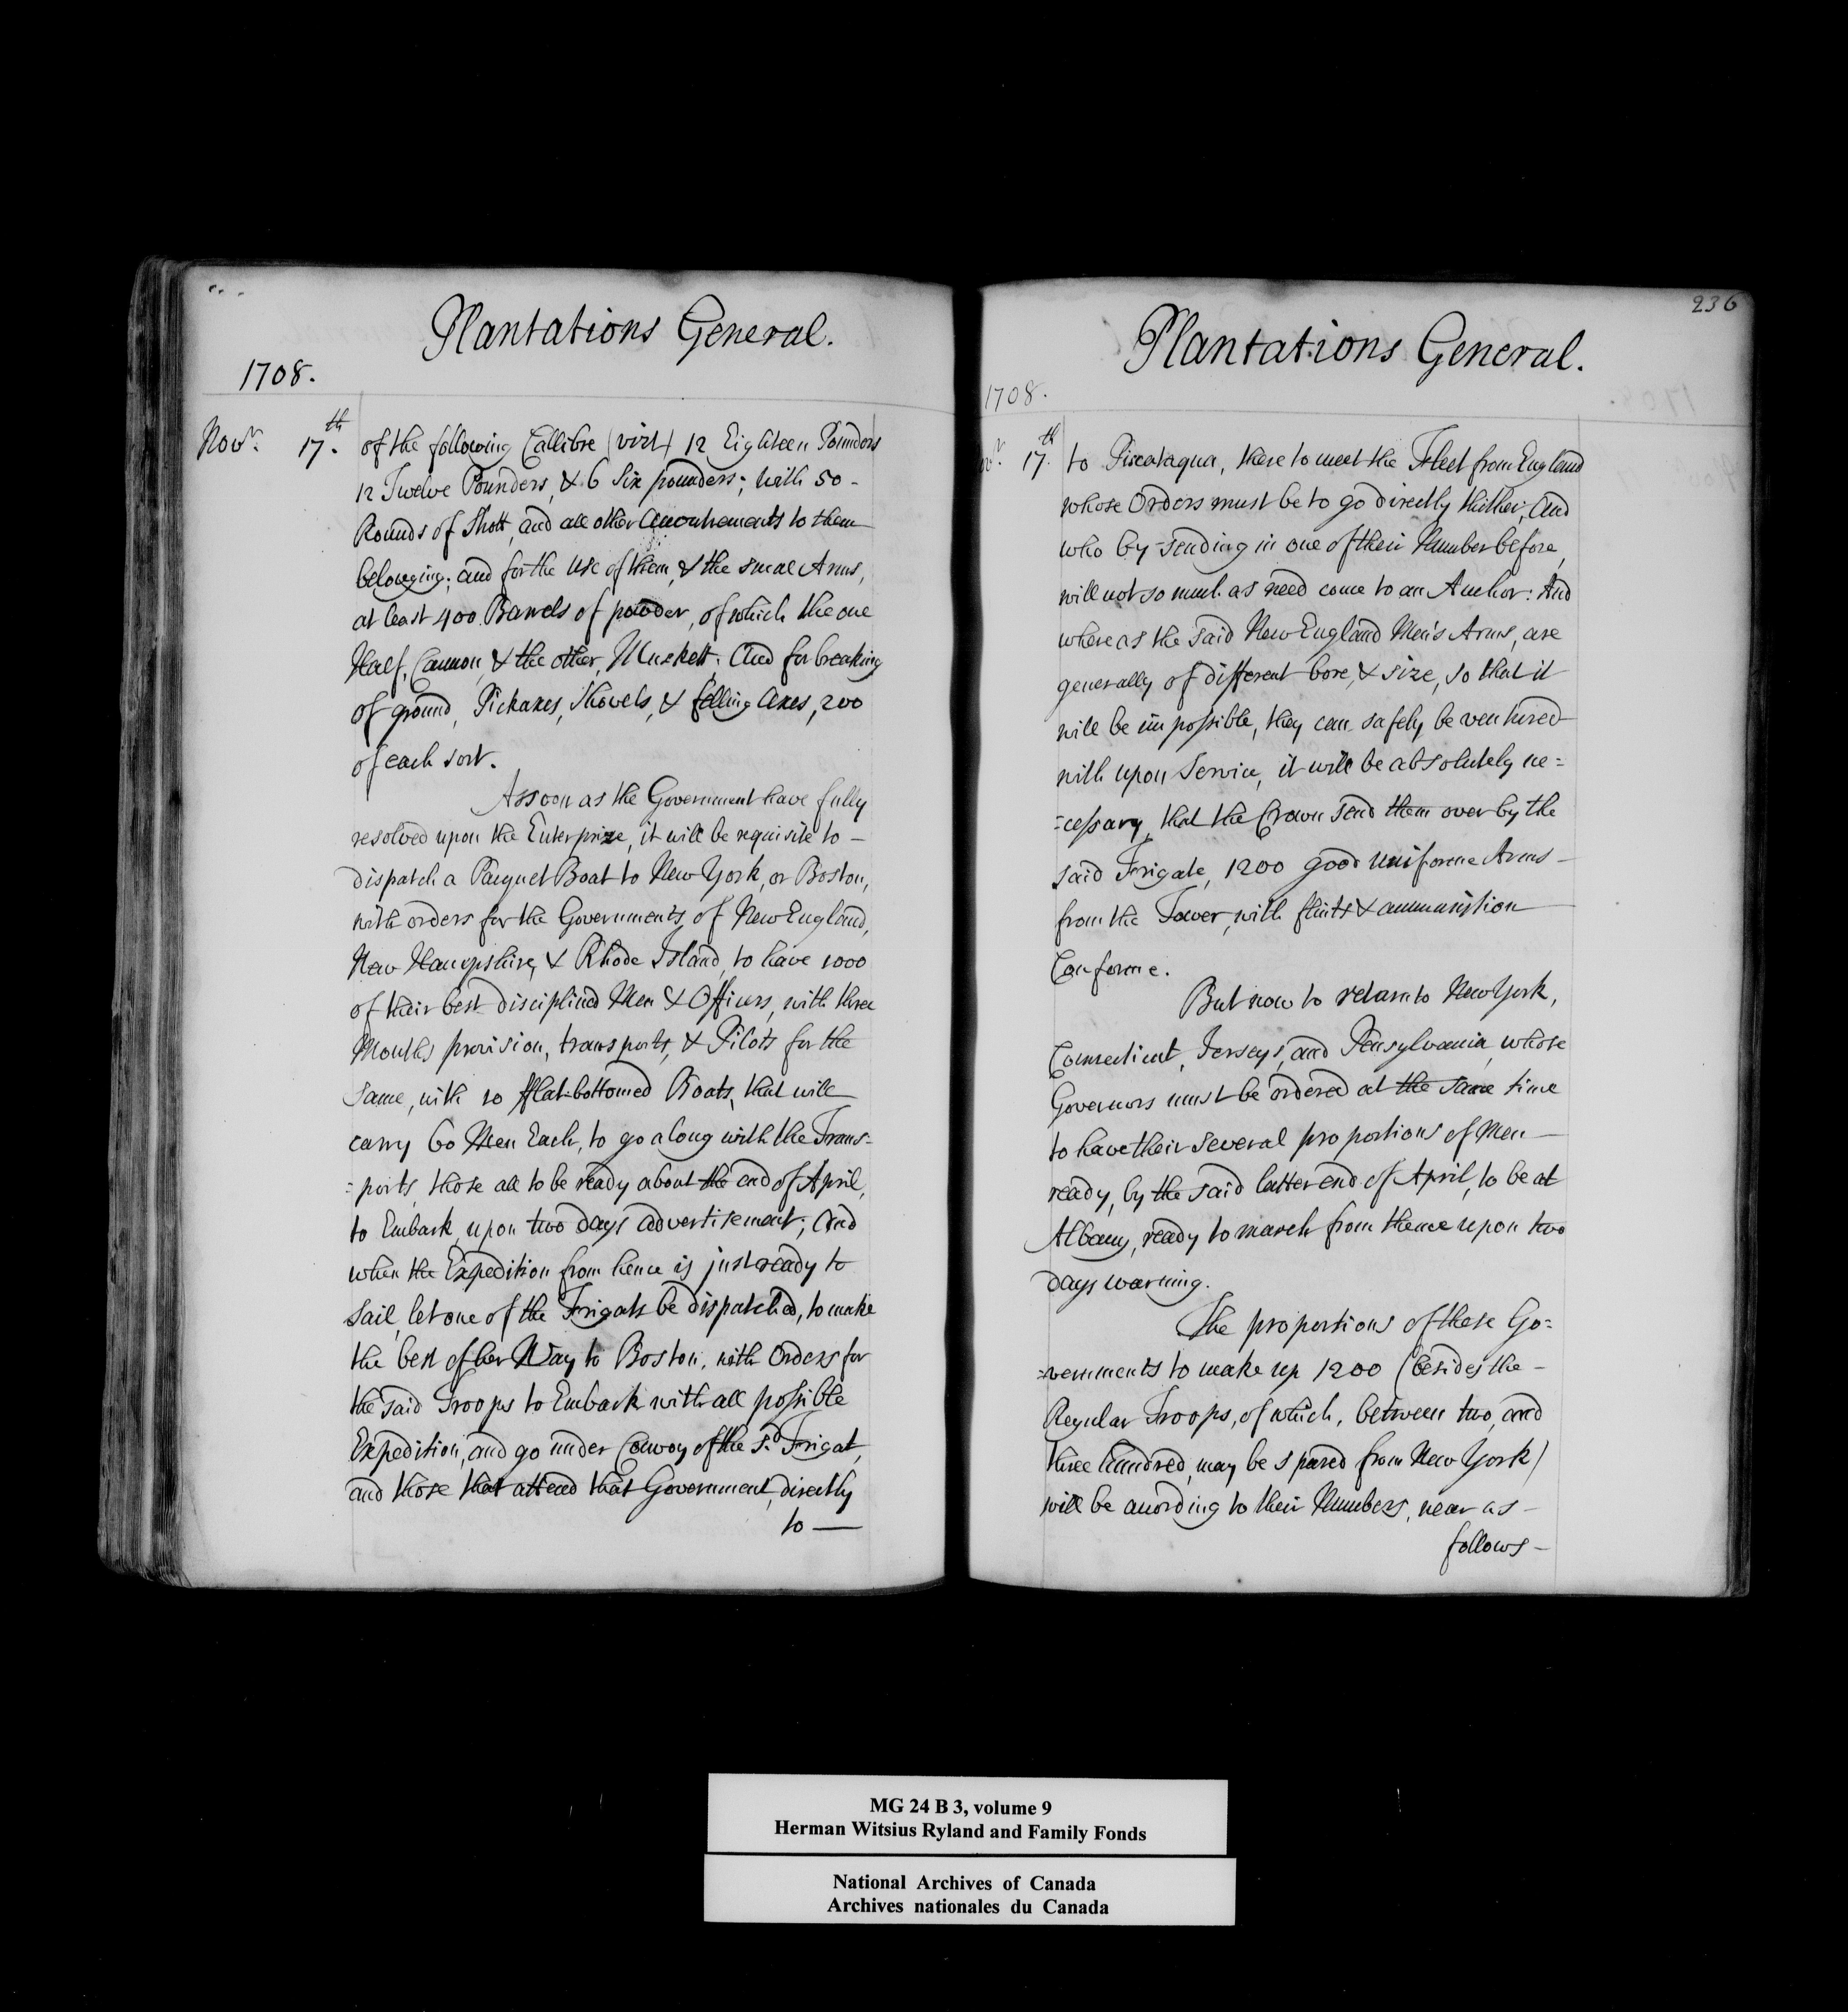 Plantations General.
1708.
Novr. 17.th of the following Callibre (vizt) 12 Eighteen Pounders
12 Twelve Pounders, & 6 Six pounders; with 50 -
Rounds of Shott, and all other Accoutrements to them
belonging; and for the Use of them, & the small Arms,
at least 400 Barrels of powder, of which the one
Half, Cannon, & the other, Muskett; And for breaking
of ground, Pickaxes, Shovels, & felling Axes, 200
of each sort.
Assoon as the Government have fully
resolved upon the Enterprize, it will be requisite to -
dispatch a Pacquet Boat to New York, or Boston,
with orders for the Governments of New England,
New Hampshire, & Rhode Island, to have 1000
of their best disciplined Men & Officers, with three
Months provision, transports, & Pilots for the
same, with 10 fflat-bottomed Boats, that will
carry 60 Men Each, to go along with the Trans=
=ports, those all to be ready about the end of April,
to Embark, upon two Days advertisement; And
when the Expedition from hence is just ready to
Sail, let one of the Frigats be dispatched, to make
the best of her Way to Boston, with Orders for
the said Troops to Embark with all possible
Expedition, and go under Convoy of the s.d Frigat,
and those that attend that Government, directly
to —
236
Plantations General.
1708.
17.th to Piscataqua, there to meet the Fleet from England
whose Orders must be to go directly thither, And
who by sending in one of their Number before,
will not so much as need come to an Anchor: And
whereas the said New England Men's Arms, are
generally of different bore, & size, so that it
will be impossible, they can safely be ventured
with upon Service, it will be absolutely ne=
=cessary, that the Crown send them over by the
said Frigate, 1200 good uniforme Arms -
from the Tower, with flints & ammunition
Conforme.
But now to return to New York,
Connecticut, Jerseys, and Pensylvania, whose
Governors must be ordered at the same time
to have their several proportions of Men -
ready, by the said latter end of April, to be at
Albany, ready to march from thence upon two
days warning.
The proportions of these Go=
=vernments to make up 1200 (besides the -
Regular Troops, of which, between two, and
three hundred, may be spared from New York)
will be according to their Numbers, near as -
follows -
MG 24 B 3, volume 9
Herman Witsius Ryland and Family Fonds
National Archives of Canada
Archives nationales du Canada